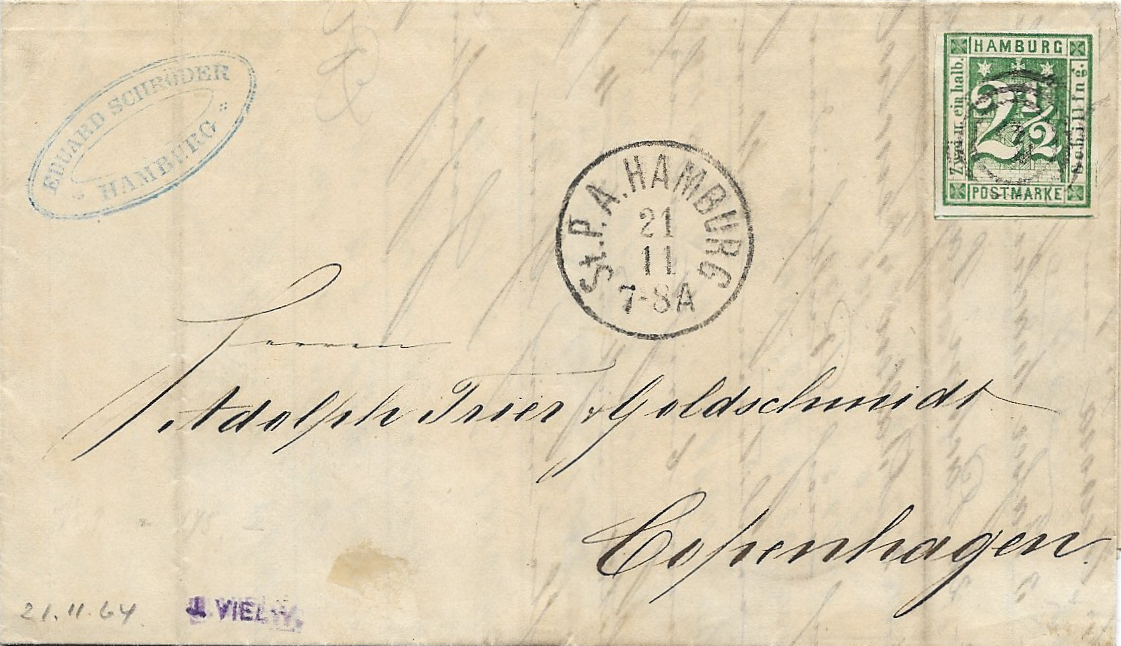 EDUARD SCHRÖDER
HAMBURG
HAMBURG
Zwei u. ein halb.
2½
Schilling.
POSTMARKE
St. P. A. HAMBURG
21
11
7-8A
Herren
Adolph Trier & Goldschmidt
Copenhagen.
21.11.64.